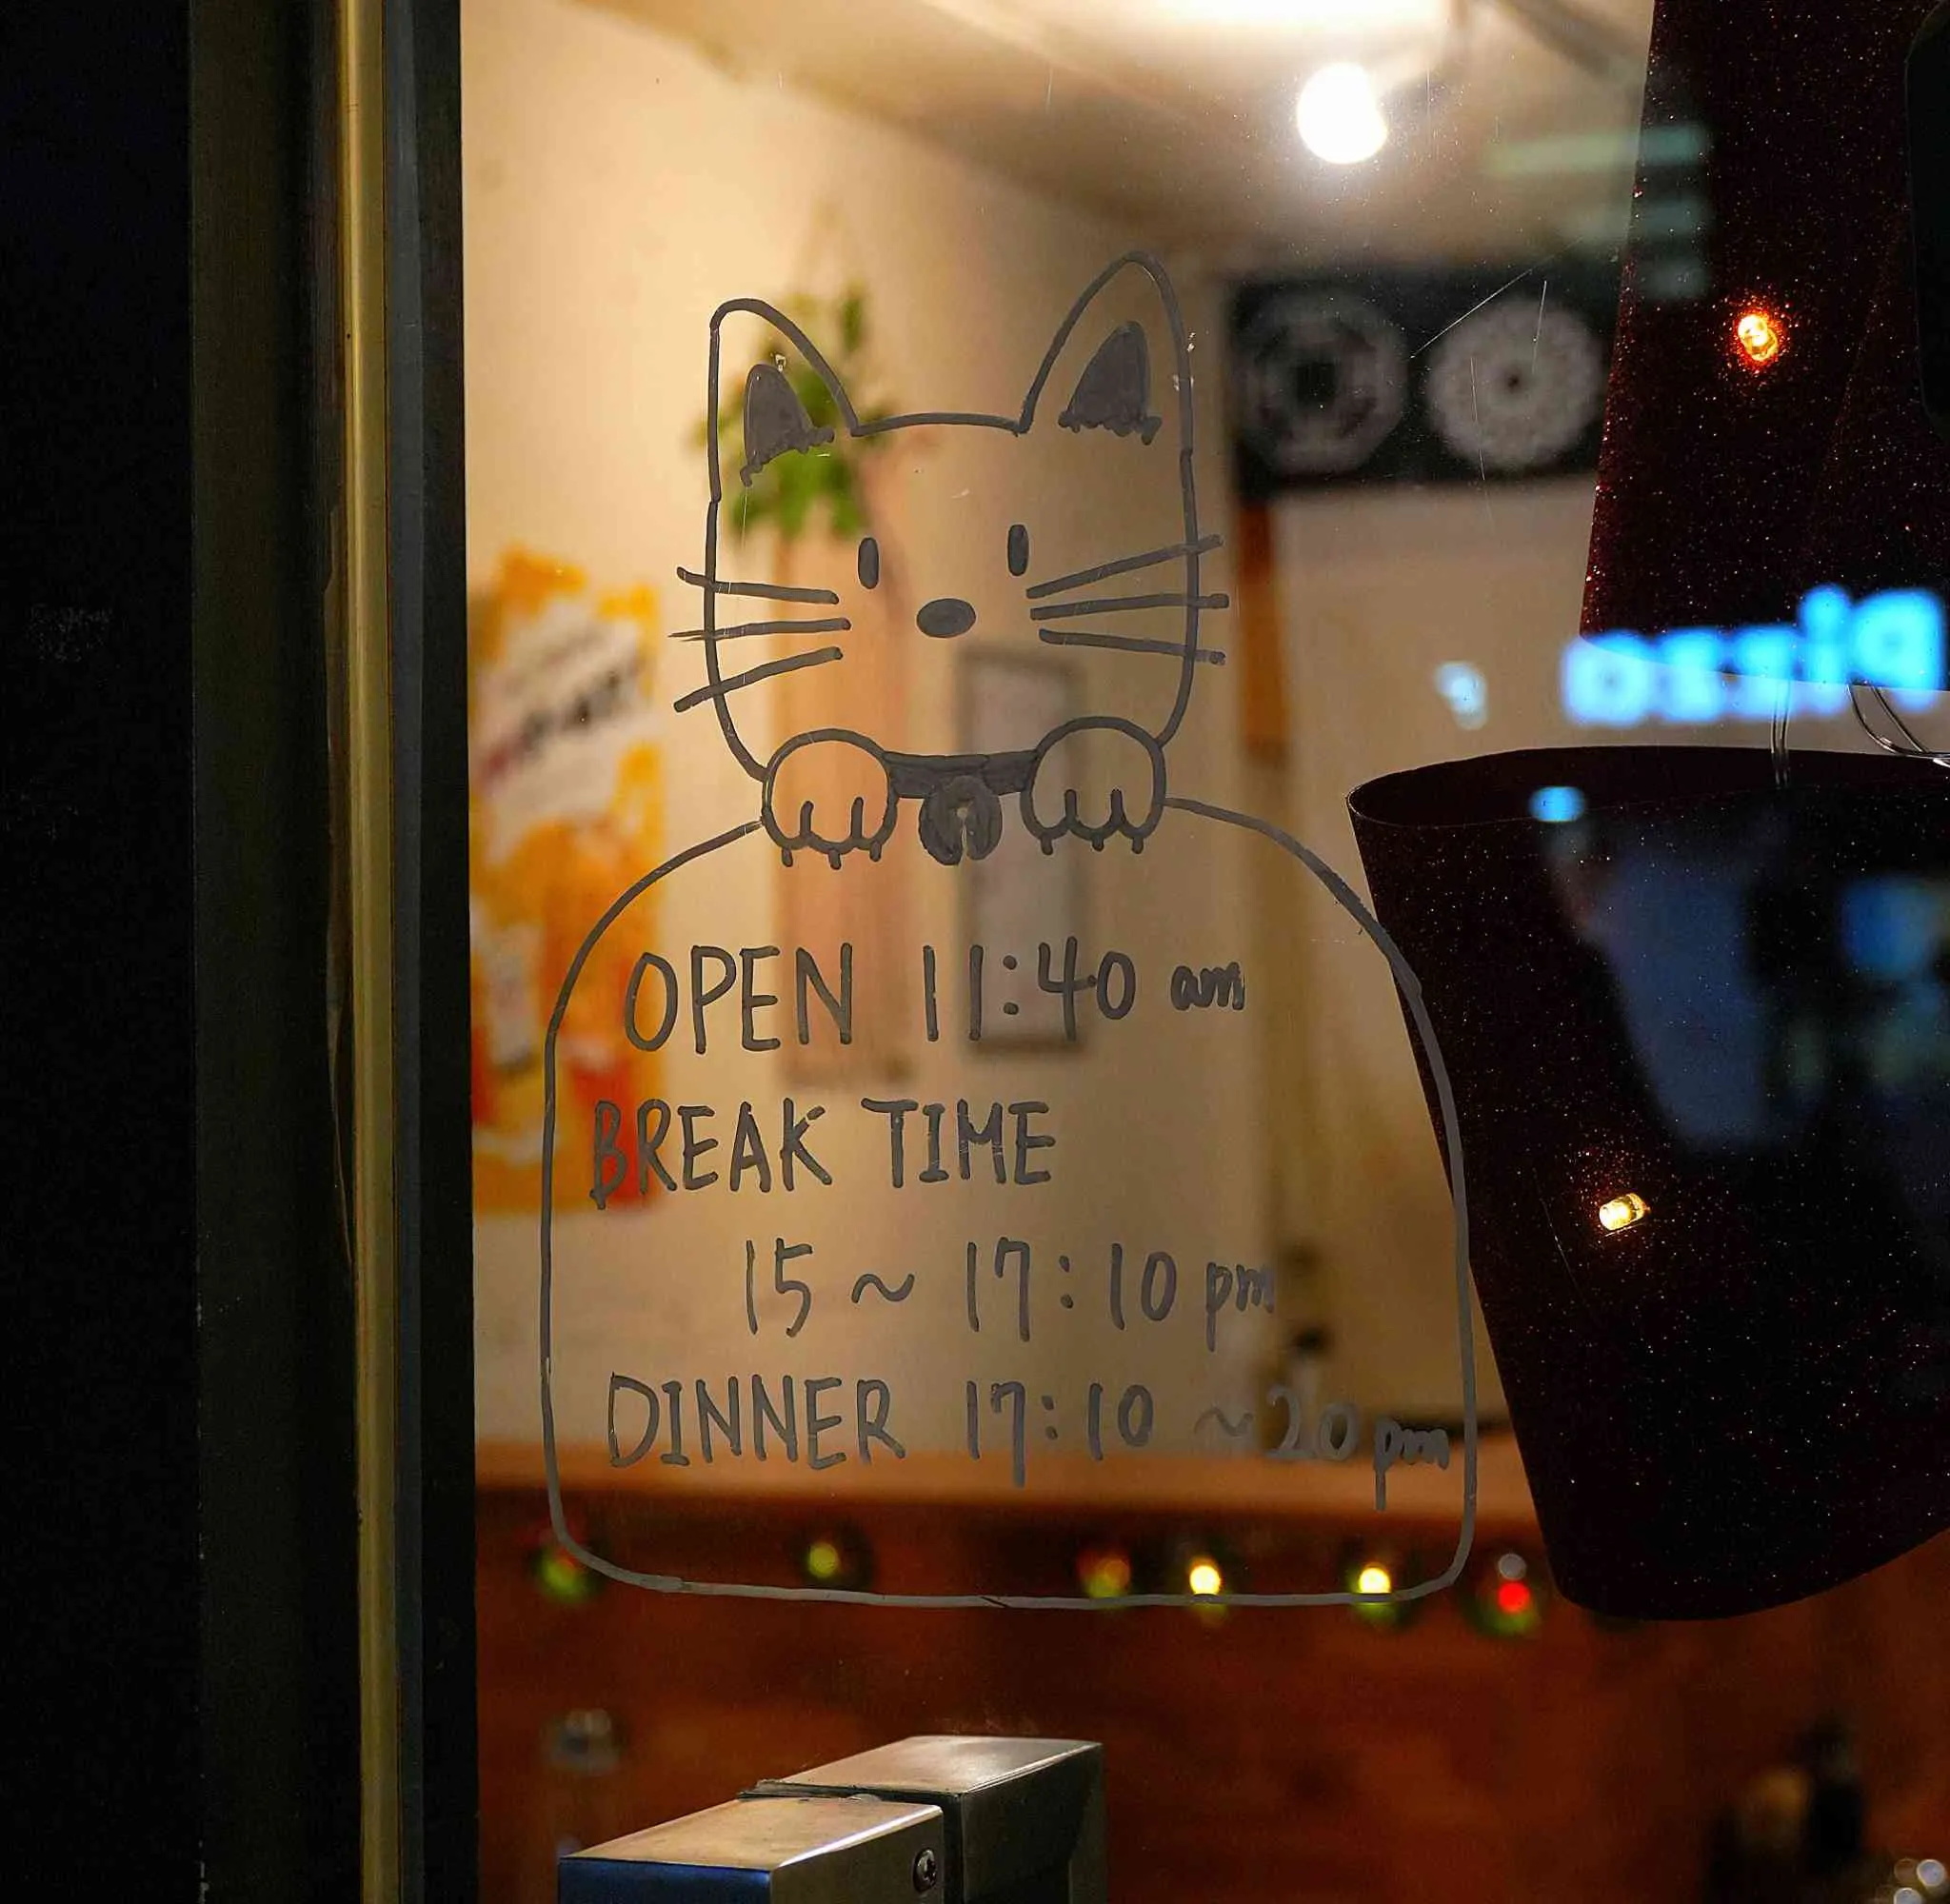 OPEN 11:40 am
BREAK TIME
15 ~ 17:10 pm
DINNER 17:10 ~ 20 pm
pizza